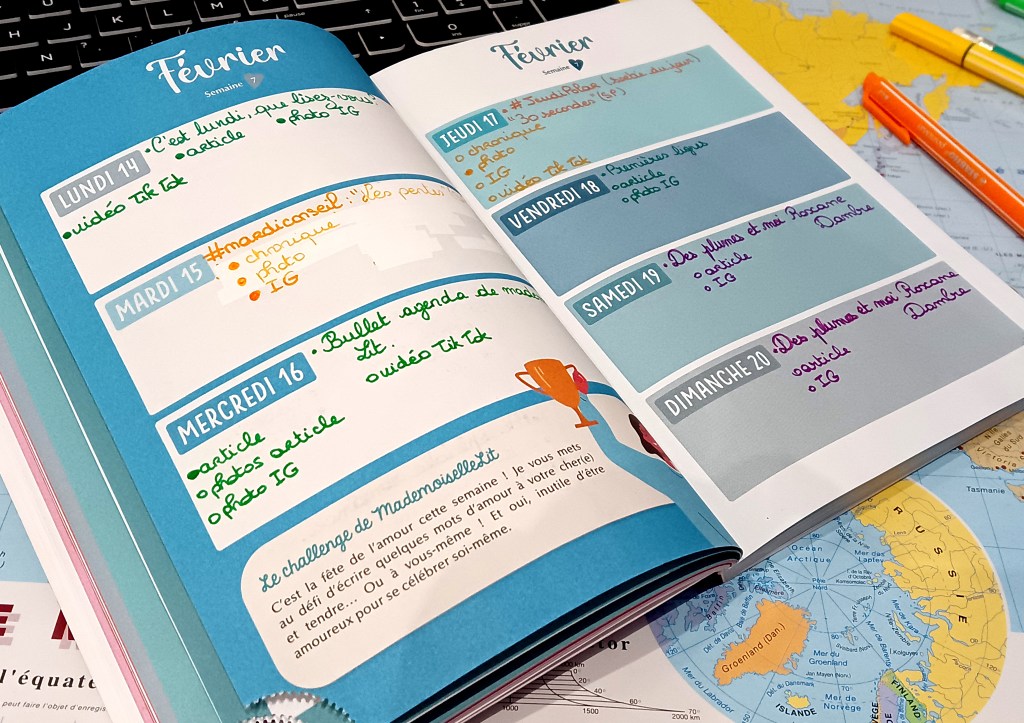 Février
Semaine 7
LUNDI 14
• C'est lundi, que lisez-vous
• article
• photo IG
• vidéo TikTok
MARDI 15
#mardiconseil : "Les perles
• chronique
• photo
• IG
MERCREDI 16
• Bullet agenda de made
Lit.
vidéo TikTok
article
photos article
photo IG
Le challenge de MademoiselleLit
C'est la fête de l'amour cette semaine ! Je vous mets
au défi d'écrire quelques mots d'amour à votre cher(e)
et tendre... Ou à vous-même ! Et oui, inutile d'être
amoureux pour se célébrer soi-même.
Février
Semaine
JEUDI 17
• #JeudiPolar (sortie du jour)
"30 secondes" (SP)
chronique
photo
IG
vidéo TikTok
VENDREDI 18
• Premières lignes
article
photo IG
SAMEDI 19
• Des plumes et moi Roxane
Dambre
article
IG
DIMANCHE 20
• Des plumes et moi Roxane
Dambre
article
IG
Victoria
Tasmanie
RUSSIE
Océan
Arctique
Mer des
Laptev
Groenland (Dan.)
Mer du
Groenland
Jan Mayen (Norv.)
Dét. du Danemark
ISLANDE
Mer de
Norvège
Mer du Labrador
FINLAND
l'équate
peut faire l'objet d'enregis
tor
1000
2000 km
60°
70°